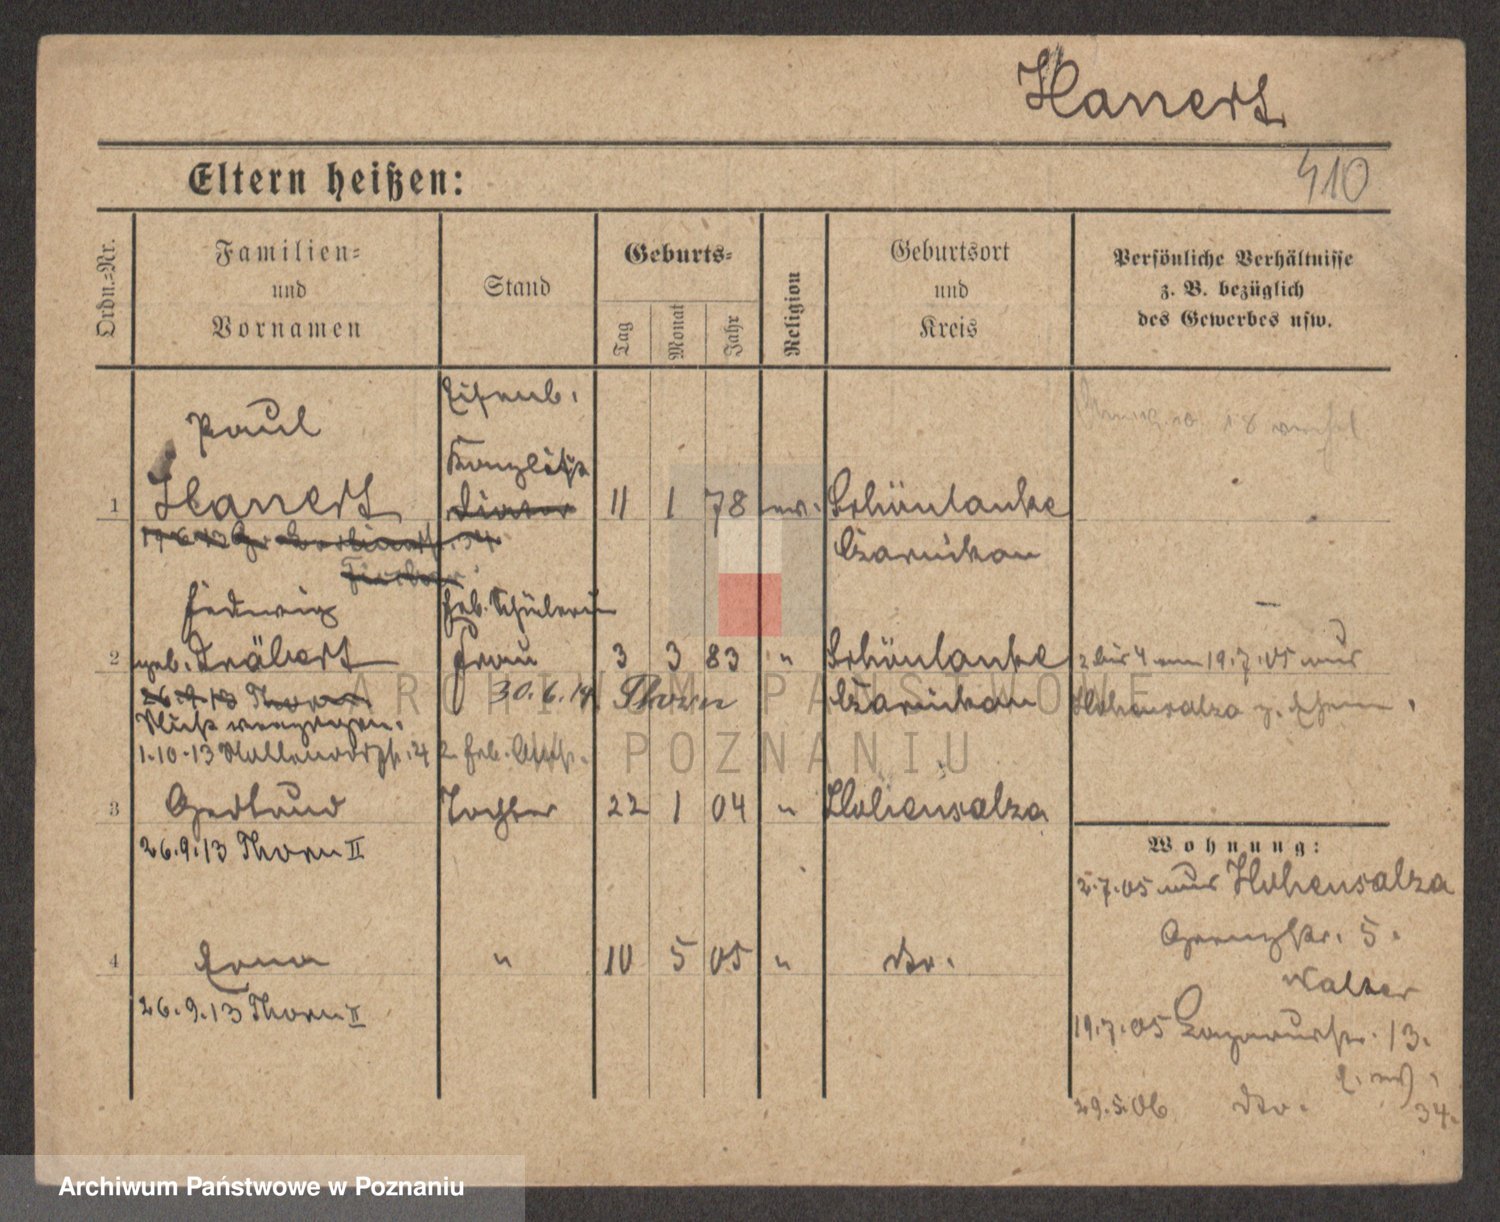 Hanert
Eltern heißen:
410
Ordn.-Nr.
Familien-
und
Vornamen
Stand
Geburts-
Tag
Monat
Jahr
Religion
Geburtsort
und
Kreis
Persönliche Verhältnisse
z. B. bezüglich
des Gewerbes usw.
Eisenb.
Paul
Kanzlist
1 Hanert Diätar 11 1 78 ev. Schönlanke
Czarnikau
Hedwig geb. Schülerin
2 geb. Dräbert Frau 3 3 83 " Schönlanke 2 bis 4 am 19.7.05 aus
26.9.13 Thorn 30.6.14 Thorn Czarnikau Hohensalza z. Ehem.
1.10.13
3 Gertrud Tochter 22 1 04 " Hohensalza
26.9.13 Thorn II
Wohnung:
2.7.05 aus Hohensalza
Grenzstr. 5.
4 Erna " 10 5 05 " dto.
Walter
26.9.13 Thorn II
19.7.05 Lazarusstr. 13.
29.5.06 dto. 34.
ARCHIWUM PAŃSTWOWE
W POZNANIU
Archiwum Państwowe w Poznaniu